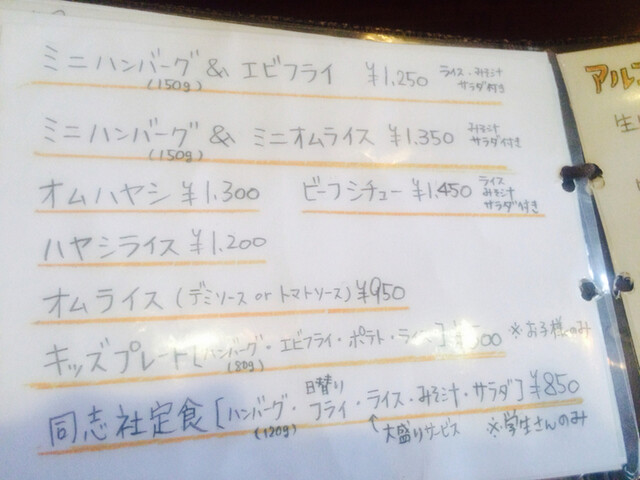 ミニハンバーグ & エビフライ ¥1,250 ライス・みそ汁
(150g) サラダ付き
ミニハンバーグ & ミニオムライス ¥1,350 みそ汁
(150g) サラダ付き
オムハヤシ ¥1,300
ビーフシチュー ¥1,450 ライス
みそ汁
サラダ付き
ハヤシライス ¥1,200
オムライス (デミソース or トマトソース) ¥950
キッズプレート [ハンバーグ・エビフライ・ポテト・ライス] ※お子様のみ
(80g)
日替り
同志社定食 [ハンバーグ・フライ・ライス・みそ汁・サラダ] ¥850
(120g) ↑大盛りサービス ※学生さんのみ
アル
生